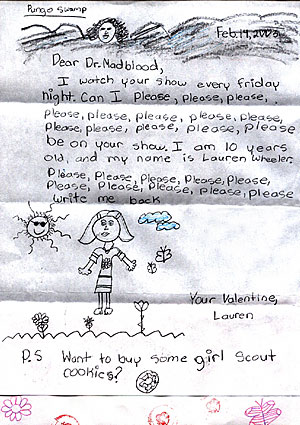 Pungo Swamp
Feb. 14, 2003
Dear Dr. Madblood,
I watch your show every Friday
night. Can I Please, please, please,
please, please, please, please, please,
Please, please, please, please, please
be on your show. I am 10 years
old, and my name is Lauren Wheeler.
Please, Please, Please, Please, Please,
Please, Please, Please, please, please
write me back
Your Valentine,
Lauren
P.S Want to buy some girl scout
cookies?